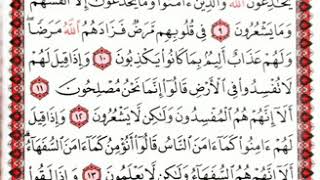 يُخَٰدِعُونَ ٱللَّهَ وَٱلَّذِينَ ءَامَنُوا۟ وَمَا يَخْدَعُونَ إِلَّآ أَنفُسَهُمْ
وَمَا يَشْعُرُونَ ٩ فِى قُلُوبِهِم مَّرَضٌ فَزَادَهُمُ ٱللَّهُ مَرَضًا
وَلَهُمْ عَذَابٌ أَلِيمٌۢ بِمَا كَانُوا۟ يَكْذِبُونَ ١٠ وَإِذَا قِيلَ لَهُمْ
لَا تُفْسِدُوا۟ فِى ٱلْأَرْضِ قَالُوٓا۟ إِنَّمَا نَحْنُ مُصْلِحُونَ ١١
أَلَآ إِنَّهُمْ هُمُ ٱلْمُفْسِدُونَ وَلَٰكِن لَّا يَشْعُرُونَ ١٢ وَإِذَا قِيلَ
لَهُمْ ءَامِنُوا۟ كَمَآ ءَامَنَ ٱلنَّاسُ قَالُوٓا۟ أَنُؤْمِنُ كَمَآ ءَامَنَ ٱلسُّفَهَآءُ
أَلَآ إِنَّهُمْ هُمُ ٱلسُّفَهَآءُ وَلَٰكِن لَّا يَعْلَمُونَ ١٣ وَإِذَا لَقُوا۟